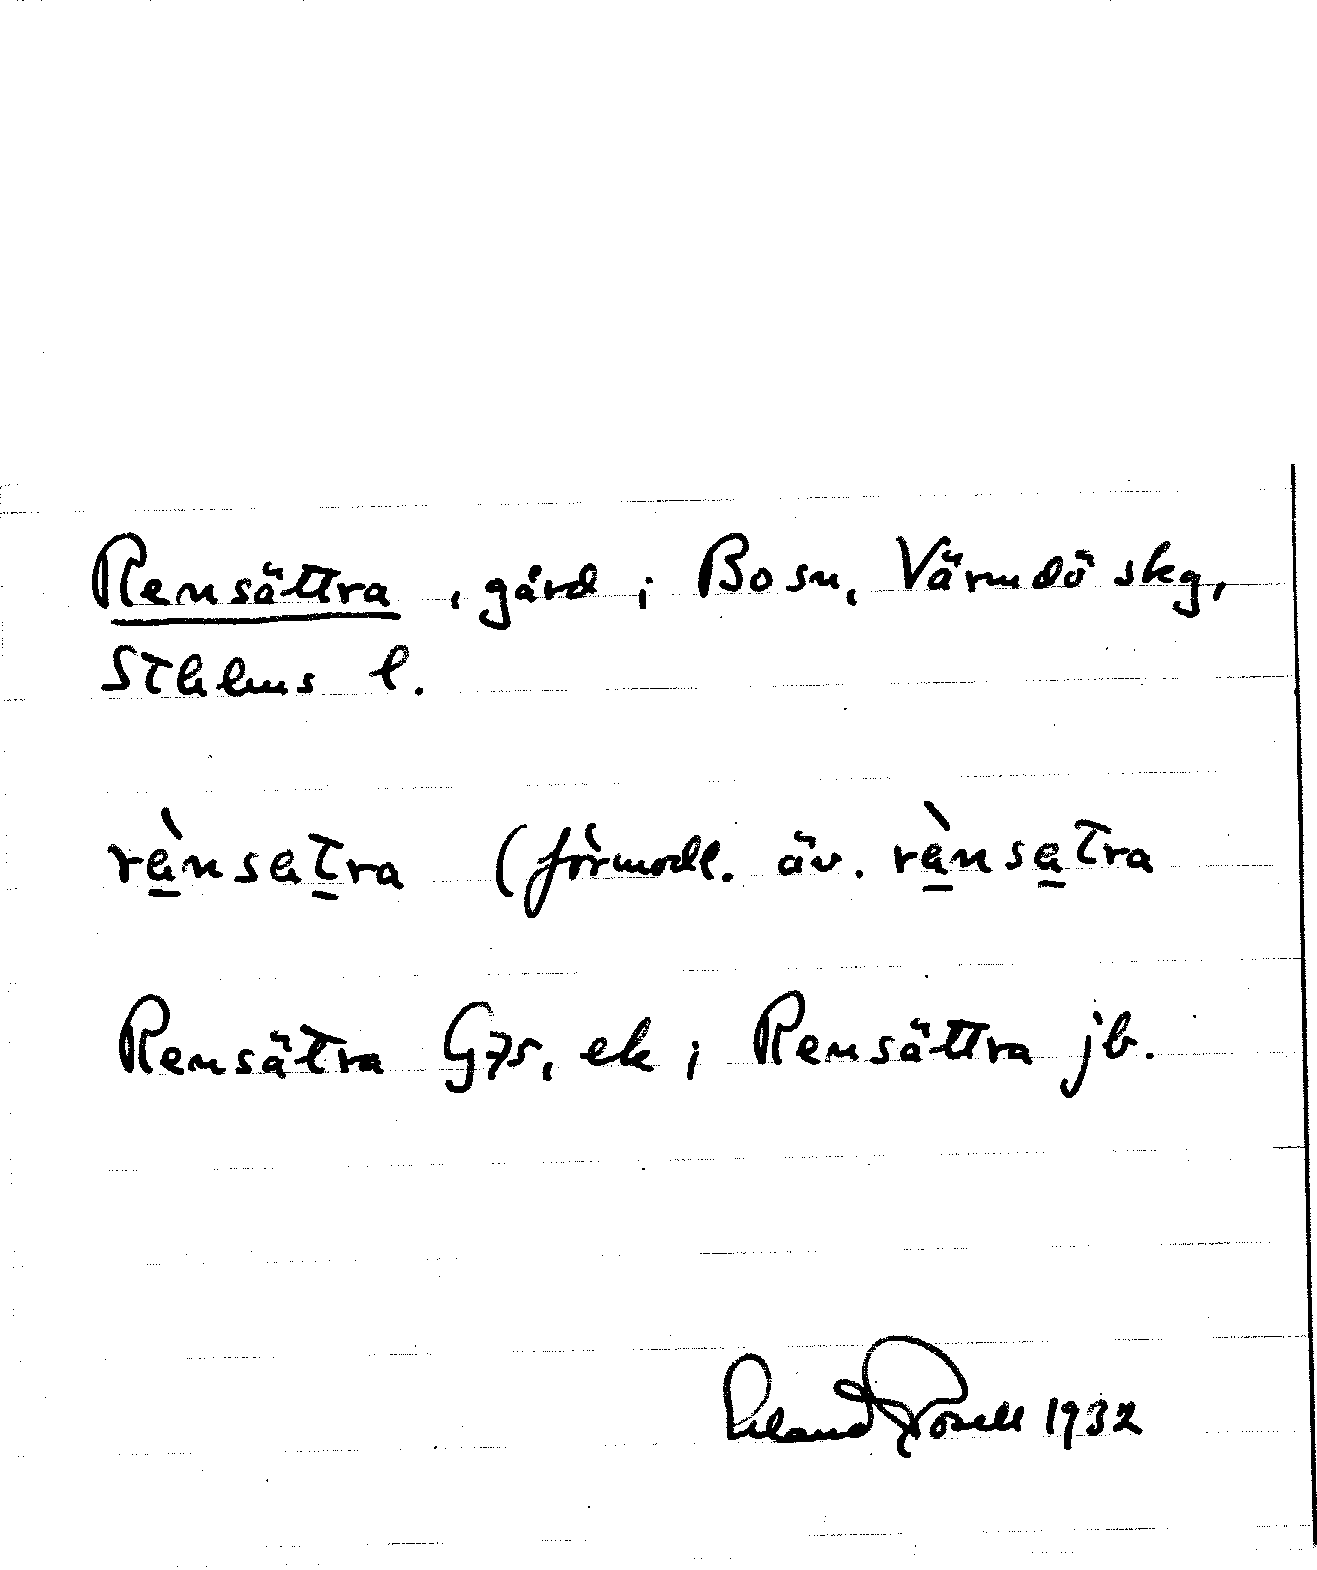 Rensättra, gård i Bo sn, Värmdö skg,
Sthlms l.
rènsetra (förmodl. äv. rènsetra
Rensätra G75, ek ; Rensättra jb.
Erland Rosell 1932